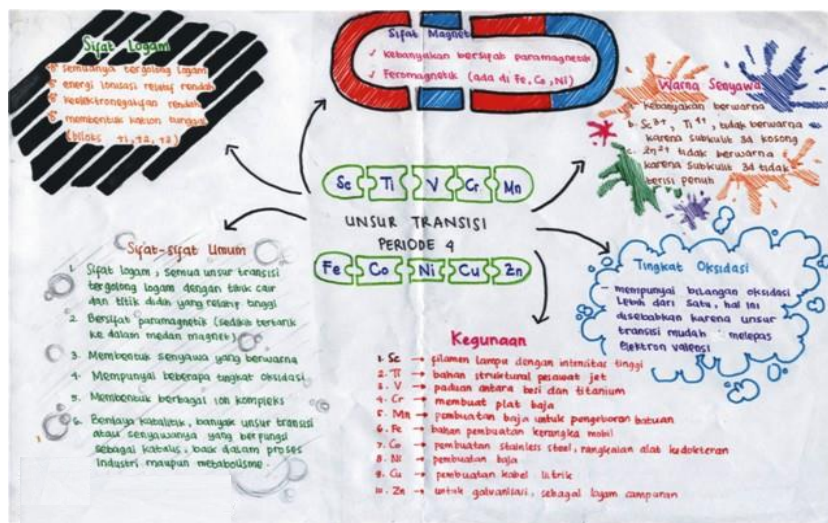 Sifat Logam
semuanya tergolong logam
energi ionisasi relatif rendah
keelektronegatifan rendah
membentuk kation tunggal
(biloks +1, +2, +3)
Sifat Magnet
✓ Kebanyakan bersifat paramagnetik
✓ Feromagnetik (ada di Fe, Co, Ni)
Warna Senyawa
Kebanyakan berwarna
b. Sc³⁺, Ti⁴⁺, tidak berwarna
karena subkulit 3d kosong
c. Zn²⁺ tidak berwarna
karena subkulit 3d tidak
berisi penuh
Sc Ti V Cr Mn
UNSUR TRANSISI
PERIODE 4
Fe Co Ni Cu Zn
Sifat-sifat Umum
1. Sifat logam, semua unsur transisi
tergolong logam dengan titik cair
dan titik didih yang relatif tinggi
2. Bersifat paramagnetik (sedikit tertarik
ke dalam medan magnet)
3. Membentuk senyawa yang berwarna
4. Mempunyai beberapa tingkat oksidasi
5. Membentuk berbagai ion kompleks
6. Berdaya katalitik, banyak unsur transisi
atau senyawanya yang berfungsi
sebagai katalis, baik dalam proses
industri maupun metabolisme.
Tingkat Oksidasi
- mempunyai bilangan oksidasi
lebih dari satu, hal ini
disebabkan karena unsur
transisi mudah melepas
elektron valensi
Kegunaan
1. Sc → filamen lampu dengan intensitas tinggi
2. Ti → bahan struktural pesawat jet
3. V → paduan antara besi dan titanium
4. Cr → membuat plat baja
5. Mn → pembuatan baja untuk pengeboran batuan
6. Fe → bahan pembuatan kerangka mobil
7. Co → pembuatan stainless steel, rangkaian alat kedokteran
8. Ni → pembuatan baja
9. Cu → pembuatan kabel listrik
10. Zn → untuk galvanisasi, sebagai logam campuran